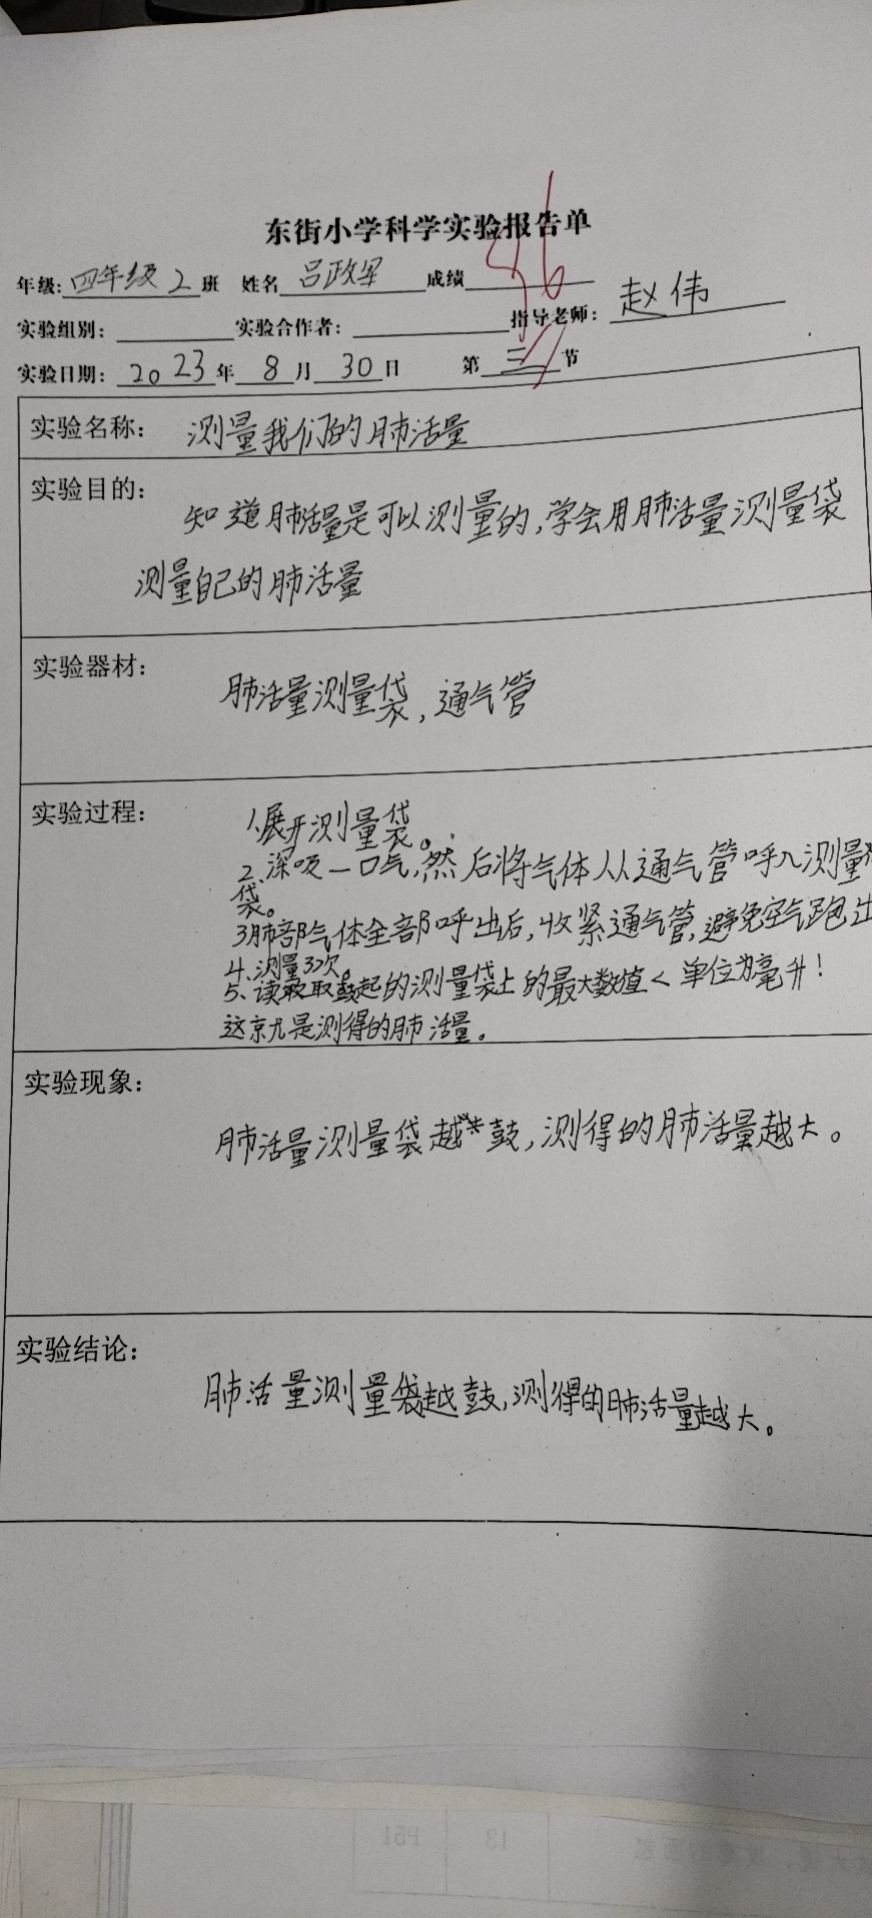 东街小学科学实验报告单
年级: 四年级 2 班 姓名 吕政军 成绩 96
实验组别: 实验合作者: 指导老师: 赵伟
实验日期: 2023 年 8 月 30 日 第 三 节
实验名称: 测量我们的肺活量
实验目的:
知道肺活量是可以测量的,学会用肺活量测量袋
测量自己的肺活量
实验器材:
肺活量测量袋,通气管
实验过程: 1、展开测量袋。
2、深吸一口气,然后将气体从通气管呼入测量
袋。
3肺部气体全部呼出后,收紧通气管,避免空气跑出
4、测量3次。
5、读取鼓起的测量袋上的最大数值<单位为毫升!
这就是测得的肺活量。
实验现象:
肺活量测量袋越鼓,测得的肺活量越大。
实验结论:
肺活量测量袋越鼓,测得的肺活量越大。
13 P51